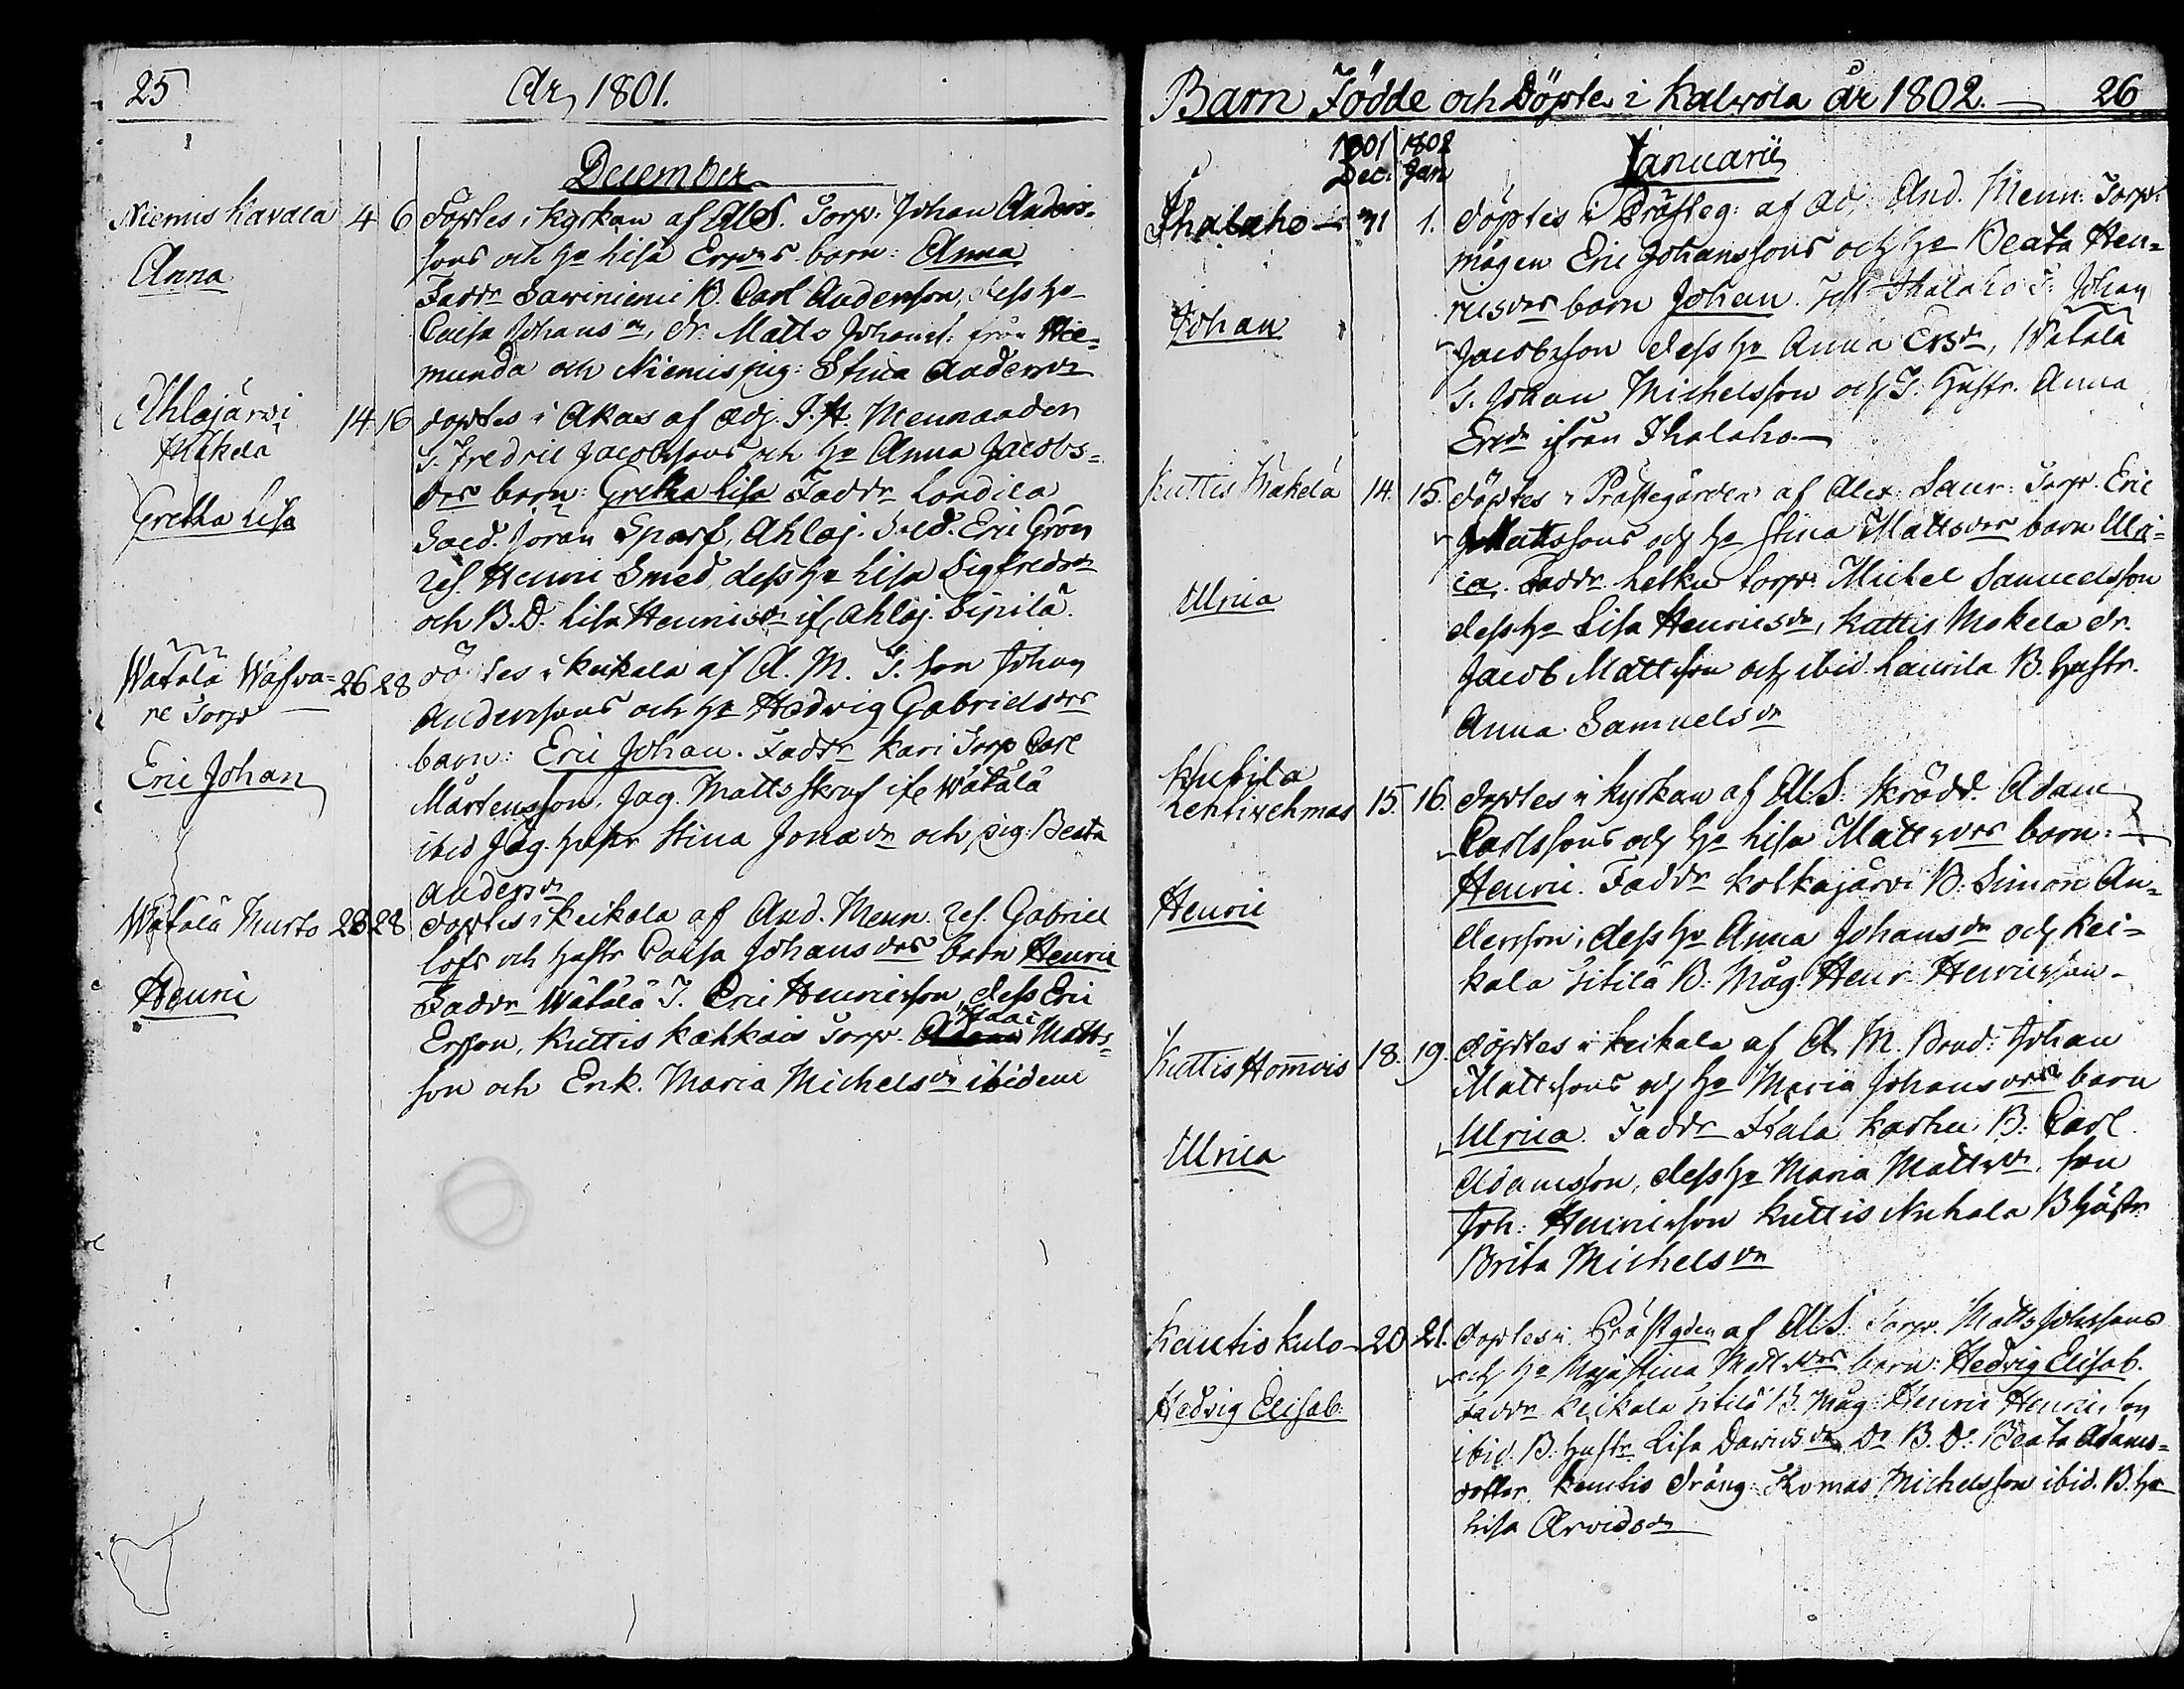 25
År 1801.
December
Niemis Kavala 4 6 Döptes i kyrkan af Al S. Torp. Johan Anders-
Anna
sons och H:u Lisa Ersdrs barn: Anna
Faddr Sariniemi B. Carl Andersson, dess H:u
Caisa Johansdr, dr. Matts Johans: från Nie=
munda och Niemis pig: Stina Andersdr
Ahlajärvi 14 16 döptes i Akas af Adj. J. H. Mennander
Mäkelä
S. Fredric Jacobssons och H:u Anna Jacobs=
Gretha Lisa
drs barn: Gretha Lisa Faddr Londila
Sold. Jöran Sparf, Ahlaj. Sold. Eric Grön
Res. Henric Smed, dess H:u Lisa Sigfredsdr
och B.D. Lisa Henricsdr if. Ahlaj. Sipilä.
Watala Wäsva= 26 28 döptes i Keikala af A. M. T. Son Johan
re Torp
Anderssons och H:u Hedvig Gabrielsdrs
Eric Johan
barn: Eric Johan. Faddr Kari Torp Carl
Mårtensson, Jag. Matts Skruf ifr Wätälä
ibid Jag. Hustr Stina Jonadr och pig. Beata
Andersdr
Wätälä Murto 28 28 döptes i Keikala af And. Menn. Res. Gabriel
Lofs och Hustr Caisa Johansdrs barn Henric
Henric
Faddr Wätälä T. Eric Henricsson, dess Eric
Ersson, Kuttis Kahkais Torp. Isaac Matts=
son och Enk. Maria Michelsdr ibidem
Barn Födde och Döpte i Kalvola år 1802. 26
1801 1802
Dec. Jan
Januarii
Ihalaho 31 1. döptes i Prästeg: af Adj. And. Menn: Torp-
mågen Eric Johanssons och H:u Beata Hen=
Johan
ricsdrs barn Johan. Test Ihalaho T. Johan
Jacobsson dess H:u Anna Ersdr, Watala
S. Johan Michelsson och T. Hustr. Anna
Ericdr ifrån Ihalaho.
Kuttis Mäkelä 14. 15. döptes i Prästegården af Alex: Saur: Torp. Eric
Mattssons och H:u Stina Mattsdrs barn Ulri=
Ulrica
ca. Faddr. Torp. Michel Samuelsson
dess H:u Lisa Henricsdr, Kuttis Mäkelä dr.
Jacob Mattsson och ibid. Laurila B. Hustr.
Anna Samuelsdr
Lehtivehmas 15. 16. döptes i kyrkan af Al S: skrädd. Adam
Carlssons och H:u Lisa Mattsdrs barn:
Henric
Henric. Faddr Kotkajärvi B: Simon An=
dersson, dess H:u Anna Johansdr och Kei=
kala Sitilä B: Måg. Henr Henricsson
Kuttis Hom̄ois 18. 19. döptes i Keikala af A. M. Bond: Johan
Mattssons och H:u Maria Johansdrs barn
Ulrica
Ulrica. Faddr Itala Karhu B: Carl
Adamsson, dess H:u Maria Mattsdr, son
Joh: Henricsson Kuttis Nuhala B Hustr
Brita Michelsdr
Keutis Kulo 20 21. döptes i Prästgden af Al S. Torp. Matts Johssons
och H:u Maja Stina Mattsdrs barn: Hedvig Elisab.
Hedvig Elisab:
Faddr Keikala Sitilä B. Måg. Henric Henricsson
ibid. B. Hustr Lisa Davidsdr D:o B. D: Beata Adams=
dotter. Keutis dräng. Thomas Michelsson ibid. B. H:u
Lisa Arvidsdr